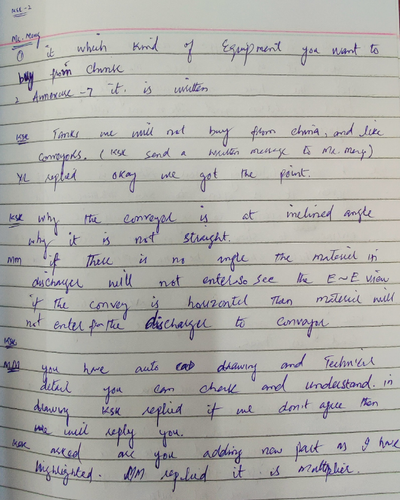 KSK-2
Mr. Meng
① it which kind of Equipment you want to
buy from China
2 Annexure-7 it is written
KSK Tanks we will not buy from china, and like
conveyors. (KSK send a written message to Mr. meng)
YL replied okay we got the point.
KSK why the conveyor is at inclined angle
why it is not straight.
MM if there is no angle the material in
discharger will not enter so see the E~E view
if the convey is horizontal than material will
not enter for the discharger to conveyor
KSK
MM you have auto cad drawing and Technical
detail you can check and understand. in
drawing KSK replied if we don't agree then
we will reply you.
KSK asked are you adding new part as I have
highlighted. MM replied it is multiplier.